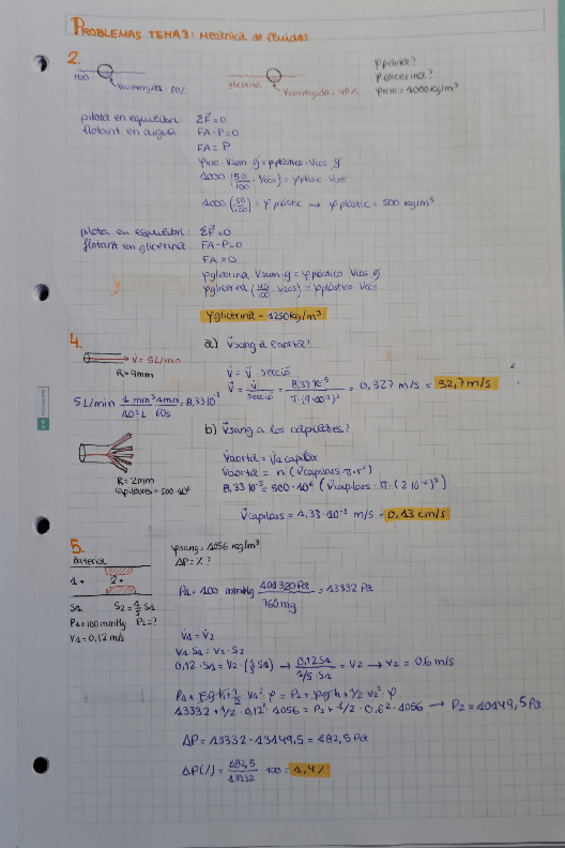 PROBLEMAS TEMA 3: Mecánica de fluidos
2.
H2O
Vsumergida: 50%
glicerina
Vsumergido: 40%
ρpilota?
ρglicerina?
ρH2O = 1000 kg/m³
pilota en equilibri ΣF = 0
flotant en aigua FA - P = 0
FA = P
ρH2O · Vsum g = ρplàstico · Vcos g
1000 (50/100 · Vcos) = ρplàstic · Vcos
1000 (50/100) = ρ plàstic → ρ plàstic = 500 kg/m³
pilota en equilibri: ΣF = 0
flotant en glicerina FA - P = 0
FA = 0
ρglicerina Vsum g = ρplàstico Vcos g
ρglicerina (40/100 · Vcos) = ρplàstico Vcos
ρglicerina = 1250 kg/m³
4.
a) Vsang a l'aorta?
V = 5 L/min
R = 4mm
V = V · secció
V = V/secció = 8,33·10⁻⁵/π·(9·10⁻³)² = 0,327 m/s = 32,7 m/s
5 L/min · 1 min³/10³ L · 1min/60s = 8,33·10⁻⁵
b) Vsang a los capilares?
R = 2mm
capilares = 500·10⁶
Vaorta = Vcapilar
Vaorta = n (Vcapilars · π · r²)
8,33·10⁻⁵ = 500·10⁶ (Vcapilars · π · (2·10⁻⁶)²)
Vcapilars = 1,33·10⁻³ m/s = 0,13 cm/s
5.
ρsang = 1056 kg/m³
ΔP = %?
arteria
1 • 2 •
S1 S2 = 1/5 S1
P1 = 100 mmHg P2 = ?
V1 = 0,12 m/s
P1 = 100 mmHg · 101320 Pa/760 mg = 13332 Pa
V1 = V2
V1 · S1 = V2 · S2
0,12 · S1 = V2 · (1/5 S1) → 0,12 S1/1/5 S1 = V2 → V2 = 0,6 m/s
P1 + ρgh + 1/2 V1² ρ = P2 + ρgh + 1/2 V2² ρ
13332 + 1/2 · 0,12² · 1056 = P2 + 1/2 · 0,6² · 1056 → P2 = 10149,5 Pa
ΔP = 13332 - 13149,5 = 182,5 Pa
ΔP(%) = 182,5/13332 · 100 = 1,4%